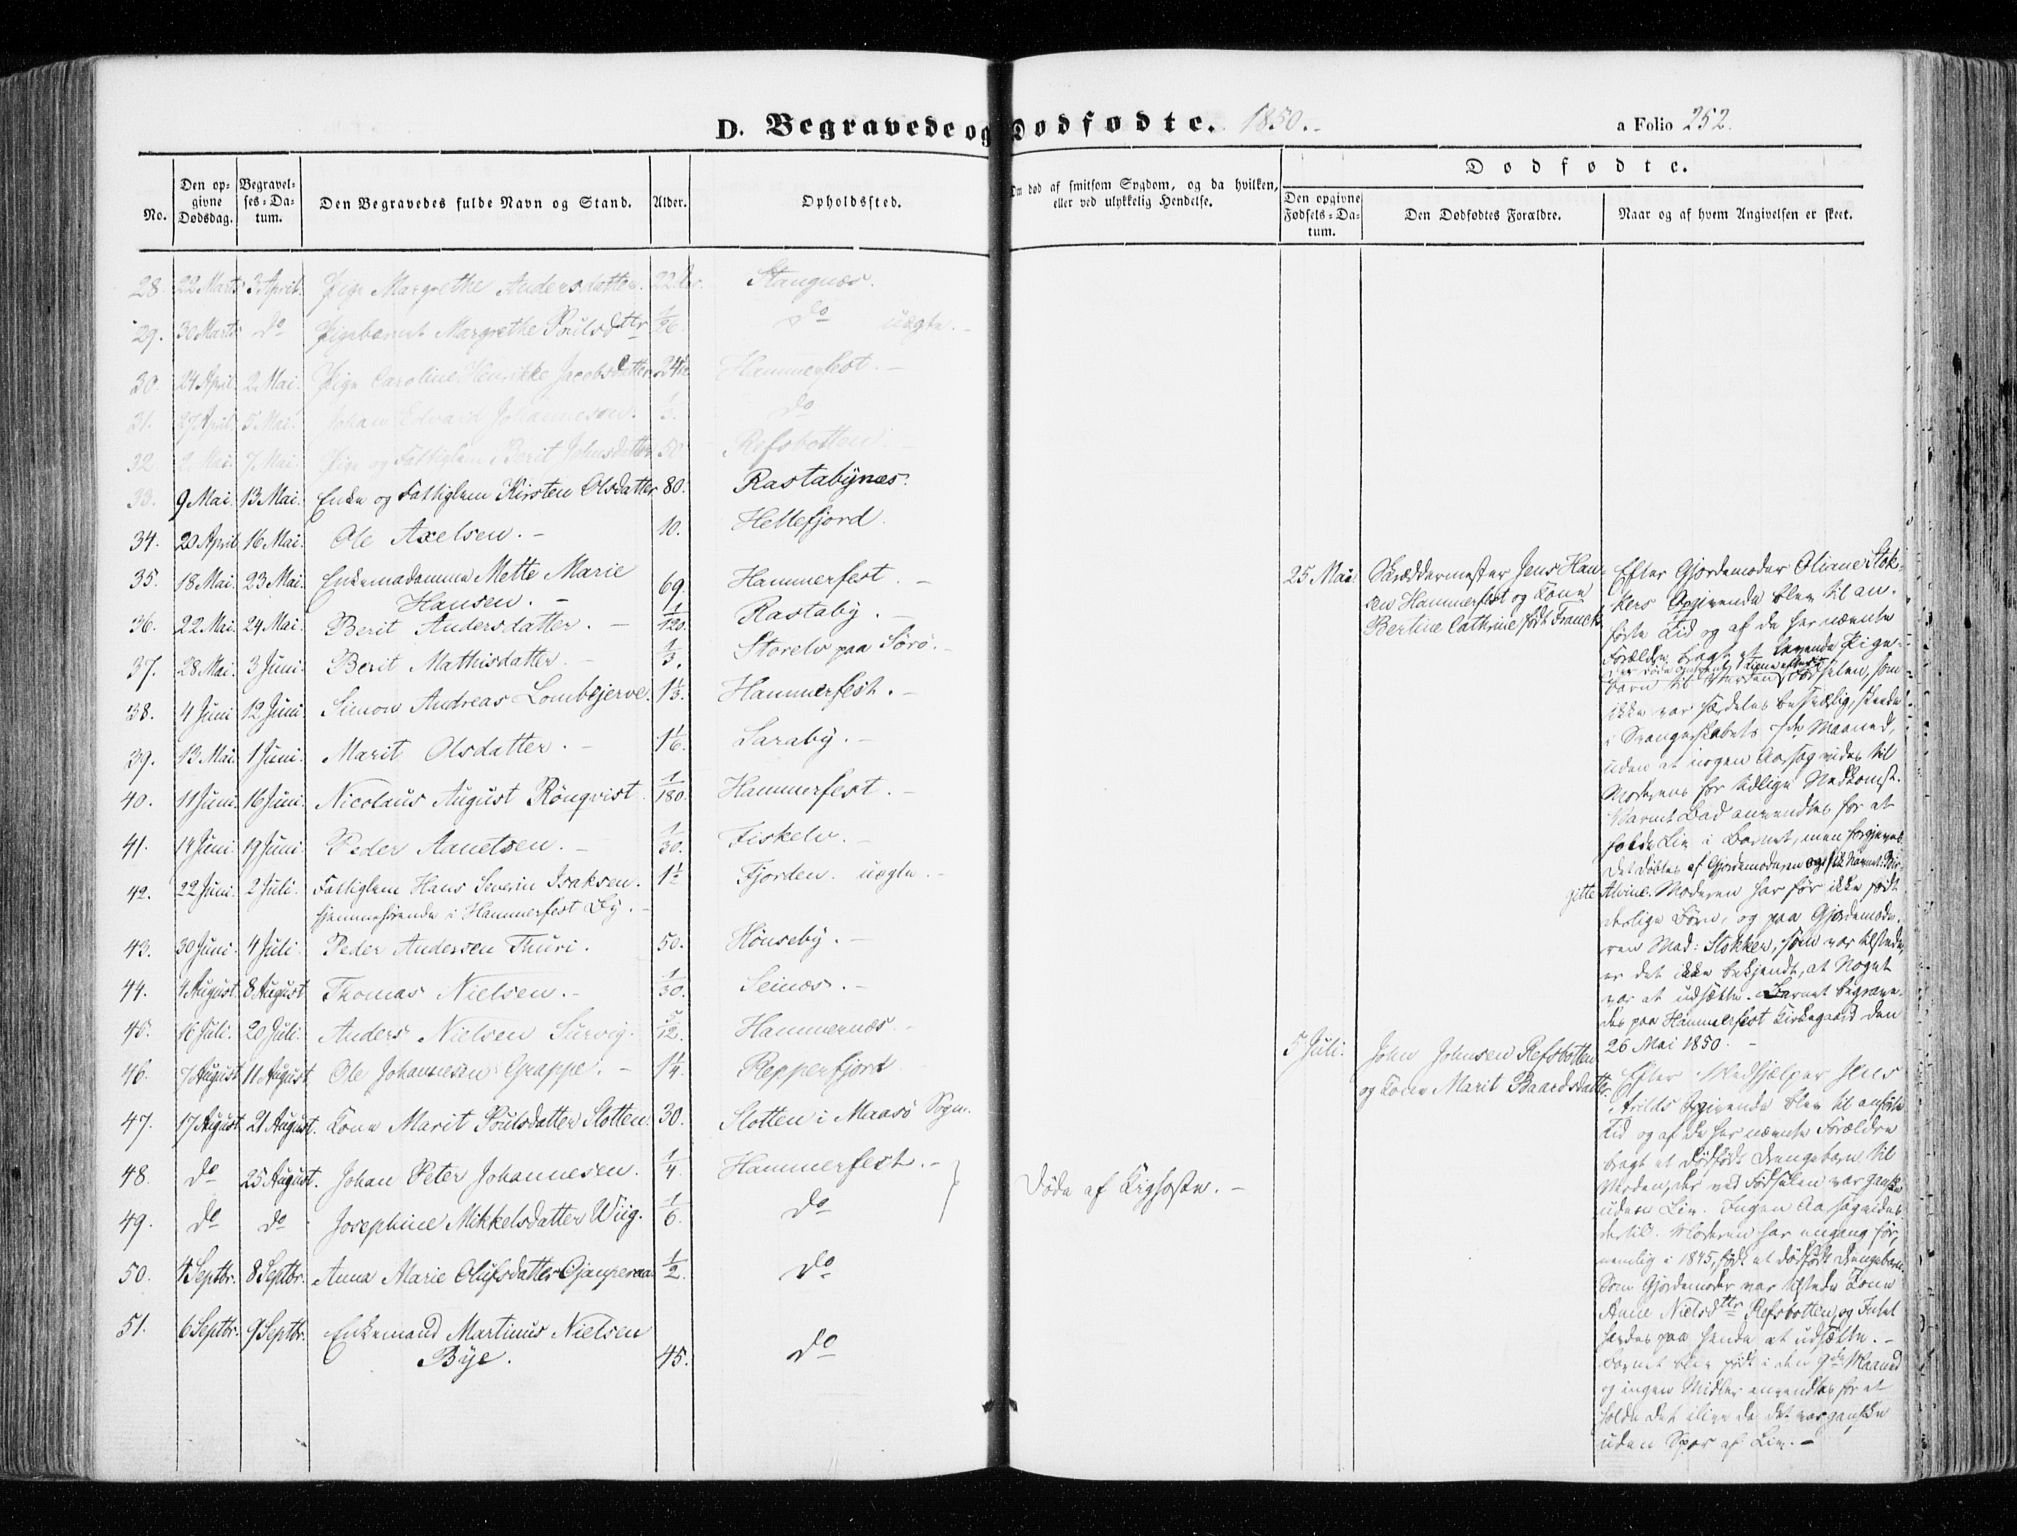 D. Begravede og Dødfødte. 1850. a Folio 252.
No. Den opgivne Dødsdag. Begravelses-Datum. Den Begravedes fulde Navn og Stand. Alder. Opholdssted. Om død af smitsom Sygdom, og da hvilken, eller ved ulykkelig Hendelse.
Dødfødte.
Den opgivne Fødsels-Datum. Den Dødfødtes Forældre. Naar og af hvem Angivelsen er skeet.
28. 22 Marts 3 April. Pige Margrethe Andersdatter. 22 Stangnæs.
29. 30 Marts do Pigebarnet Margrethe Poulsdttr 1/26. do uægte. -
30. 24 April 2 Mai. Pige Caroline Henrikke Jacobsdatter Hammerfest. -
31. 27 April. 5 Mai. Johan Edvard Johannesen. 1/3. do
32. 2 Mai. 7 Mai. Pige og Fattiglem Berit Johnsdatter 50 Refsbotten. -
33. 9 Mai. 13 Mai. Enke og Fattiglem Kirsten Olsdatter 80. Rastabynæs.
34. 20 April 16 Mai. Ole Axelsen. - 10. Hellefjord.
35. 18 Mai. 23 Mai. Enkemadamme Mette Marie
Hansen. - 69. Hammerfest. -
36. 22 Mai. 24 Mai. Berit Andersdatter. - 1/120. Rastaby. -
37. 28 Mai. 3 Juni. Berit Mathisdatter. - 1/3. Storelv paa Sørø. -
38. 4 Juni 12 Juni. Simon Andreas Lombjerve. 1 1/3. Hammerfest. -
39. 13 Mai. 1 Juni. Marit Olsdatter. - 1 1/6. Saraby. -
40. 11 Juni. 16 Juni. Nicolaus August Rönqvist. 1/180. Hammerfest. -
41. 14 Juni. 19 Juni. Peder Anetsen. - 1/30. Fiskelv. -
42. 22 Juni. 2 Juli. Fattiglem Hans Severin Isaksen. 1 1/2 Fjorden. uægte. -
hjemmehørende i Hammerfest By. -
43. 30 Juni. 4 Juli. Peder Andersen Thuri. 50. Hönseby. -
44. 4 August. 8 August Thomas Nielsen. - 1/30. Seinæs. -
45. 16 Juli. 20 Juli. Anders Nielsen Survig. 5/12. Hammernæs. -
46. 7 August 11 August Ole Johannesen Grappe. - 1 1/4. Repperfjord.
47. 17 August 21 August. Kone Marit Poulsdatter Slotten. 30. Slotten i Maasö Sogn.
48. do 25 August. Johan Peter Johannesen. 1/4. Hammerfest. -
Døde af Kighoste. -
49. do do Josephine Mikkelsdatter Wiig. 1/6. do
50. 4 Septbr. 8 Septbr. Anna Marie Olufsdatter 1/2. do
51. 6 Septbr. 9 Septbr. Enkemand Martinus Nielsen
Bye. 45. do
25 Mai. Skræddermester Jens Han-
sen Hammerfest og Kone
Bertine Cathrine født Franck.
Efter Gjordemoder Oliane Stok-
kers Opgivende blev til an-
førte Tid og af de her nævnte
Forældre bragt et levende Pige-
der døde efter
barn til Verden Fødselen, som
ikke var særdeles besværlig, skede
i Svangerskabets 7de Maaned,
uden at nogen Aarsag vides til
Moderens for tidlige Nedkomst.
Varmt Bad anvendtes for at
holde Liv i Barnet, men forgjeves.
Det døbtes af Gjordemoderen og fik Navnet: Bir-
gitte Alvine. Moderen har før ikke født
ulige Børn, og paa Gjordemode-
ren Mad: Stokken, som var tilstede,
er det ikke bekjendt, at Noget
var at udsætte. Barnet begrave-
des paa Hammerfest Kirkegaard den
26 Mai 1850. -
5 Juli. John Johnsen Refsbotten
og Kone Marit Baardsdatter.
Efter Medhjælper Jens
Arilds Opgivende blev til anførte
Tid og af de her nævnte Forældre
bragt et dødfødt Drengebarn til
Verden, der ved Fødselen var ganske
uden Liv. Ingen Aarsag vides
dertil. Moderen har engang før,
nemlig i 1845, født et dødfødt Drengebarn.
Som Gjordemoder var tilstede Kone
Anne Nielsdttr Refsbotten, og Intet
haves paa hende at udsætte. -
Barnet blev født i den 9de Maaned
og ingen Midler anvendtes for at
holde det ilive da det var ganske
uden Spor af Liv. -